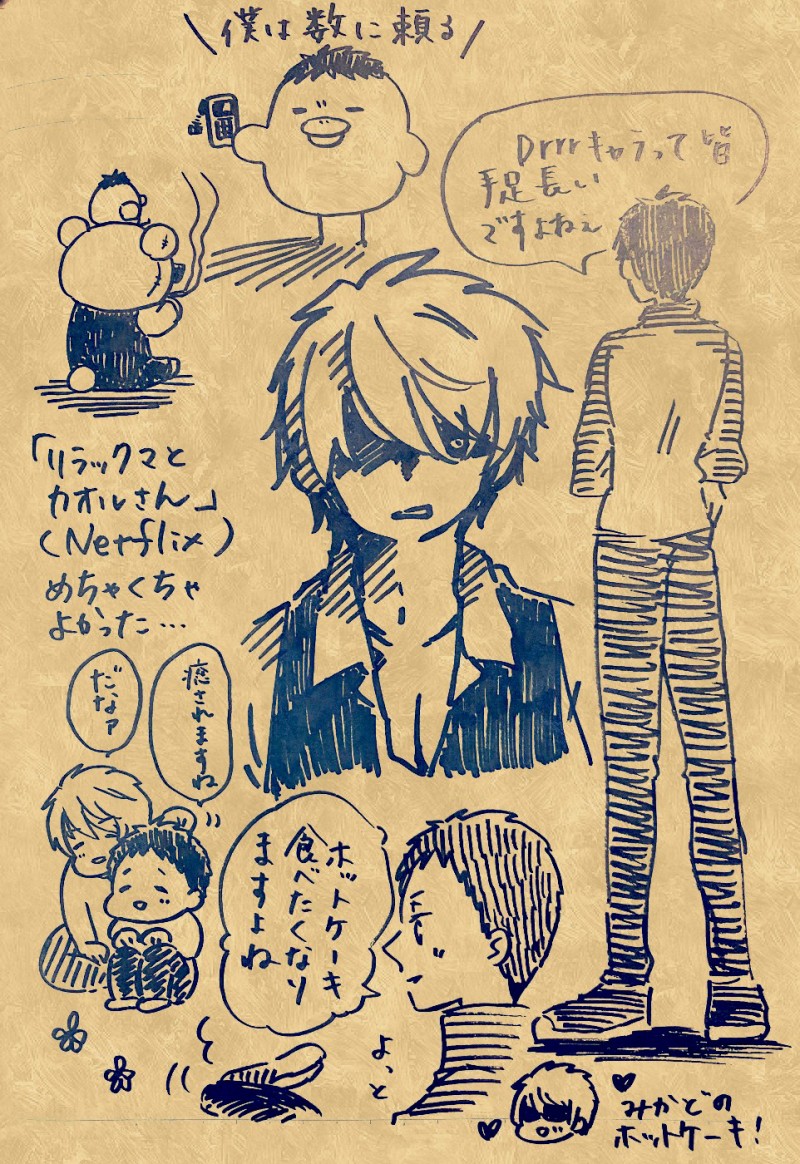 \僕は数に頼る/
Drrrキャラって皆
手足長い
ですよねぇ
「リラックマと
カオルさん」
(Netflix)
めちゃくちゃ
よかった…
癒されますね
だなァ
ホットケーキ
食べたくなり
ますよね
よっと
みかどの
ホットケーキ!